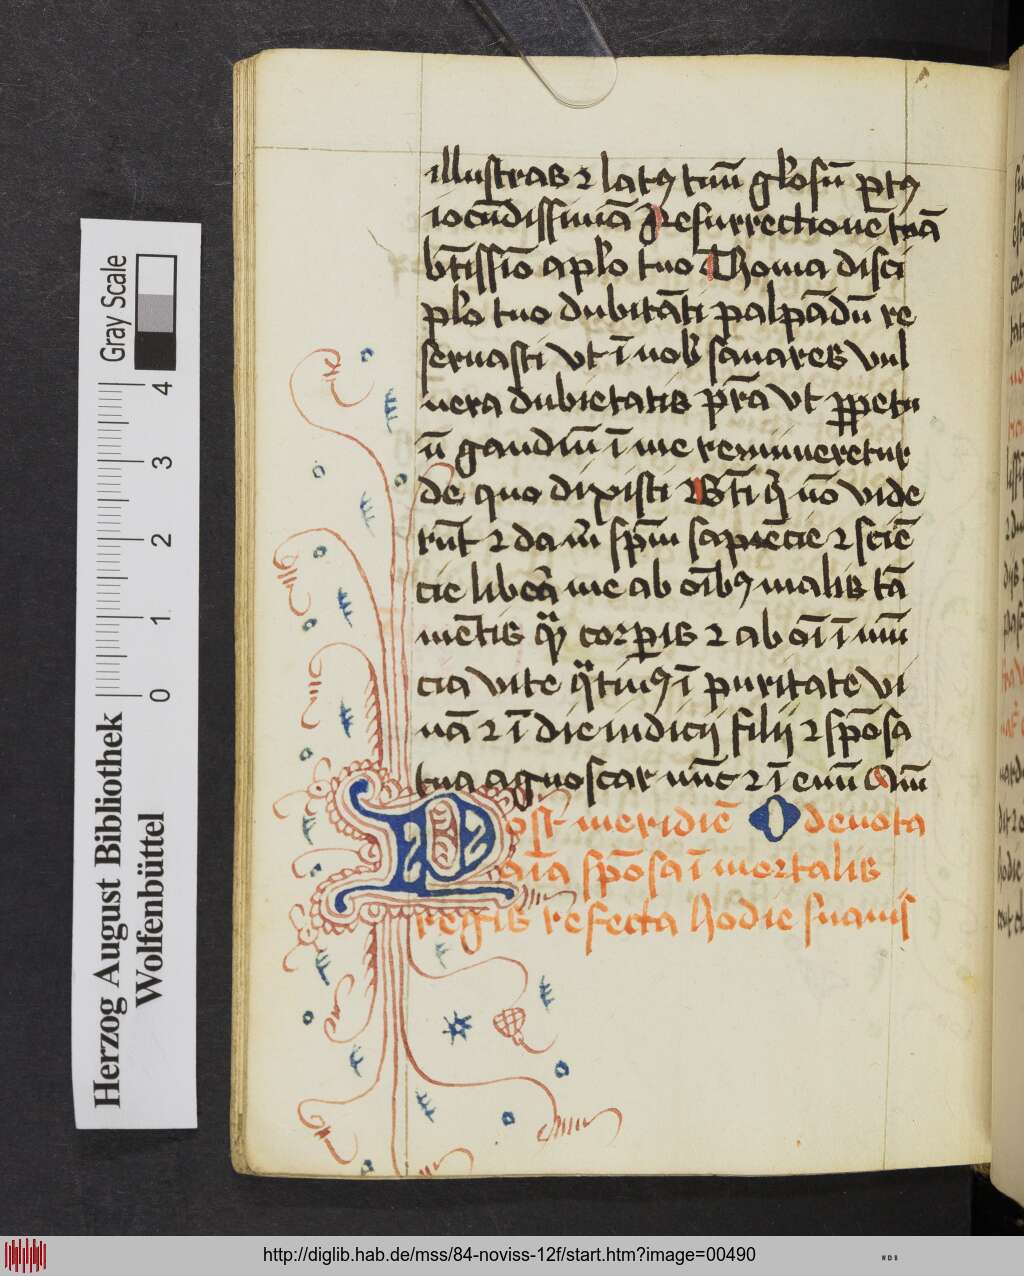 illustras ⁊ latꝰ tuū gl'osū p̄tꝰ
iocūdissimā Resurrectionē tuā
btīssīo aplo tuo Thoma disci
plo tuo dubitāti palpādū re
seruasti vt ī nob̄ sanares vul
nera dubietatis p̄rā vt ꝑpetu
ū gaudiū ī me reminueretur
de quo dixisti ⁊ Bti q̄ nō vide
rūt ⁊ da m̄ sp̄m sapiēcie ⁊ sciē
cie libeā me ab oībꝰ malis tā
mētis qꝫ corꝑis ⁊ ab oī ī mū
cia vite qtinꝰ ī puritate vi
uā ⁊ ī die iudicij filij ⁊ spōsa
tua agnoscar nūc ⁊ ī euū Am̄
Post meridiē O deuota
aīa spōsa ī mortalis
regis refecta hodie suauis
Herzog August Bibliothek
Wolfenbüttel
Gray Scale
0 1 2 3 4
http://diglib.hab.de/mss/84-noviss-12f/start.htm?image=00490